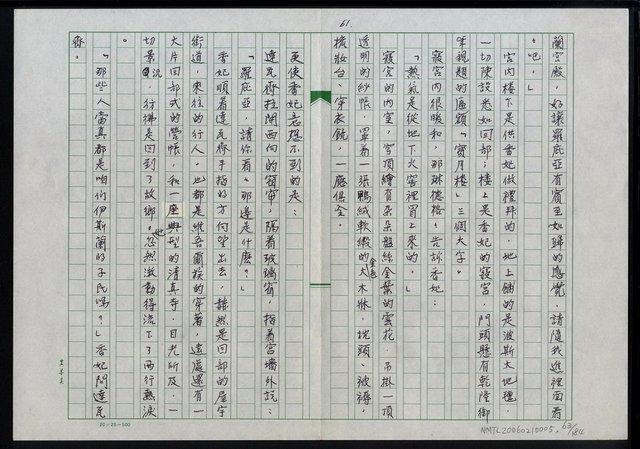 61.
蘭宮殿，好讓羅庇亞有賓至如歸的感覺，請隨我進裡面看
吧。」
宮內樓下是供香妃做禮拜的，地上舖的是波斯大地毯，
一切陳設悉如回部；樓上是香妃的寢宮，門頭懸有乾隆御
筆親題的匾額「寶月樓」三個大字。
寢宮內很暖和，那琳德格告訴香妃：
「熱氣是從地下火窖裡冒上來的。」
寢宮的內室，宮頂繪有朵朵盤絲金葉的雲花，吊掛一頂
透明的紗帳，罩着一張鴨絨軟緞的金色大木牀，枕頭、被褥，
梳妝台、穿衣鏡，一應俱全。
更使香妃意想不到的是：
達瓦齊拉開西向的窗帘，隔着玻璃窗，指着宮墻外說：
「羅庇亞，請你看，那邊是什麼？」
香妃順着達瓦齊手指的方向望出去，赫然是回部的屋宇
街道，來往的行人，也都是維吾爾族的穿著，遠處還有一
大片回部式的營帳，和一座典型的清真寺，目光所及，一
切景況，彷彿是回到了故鄉，她忽然激動得流下了兩行熱淚
。
「那些人當真都是咱們伊斯蘭的子民嗎？」香妃問達瓦
齊。
20×25=500
NMTL20060210005, 63/184